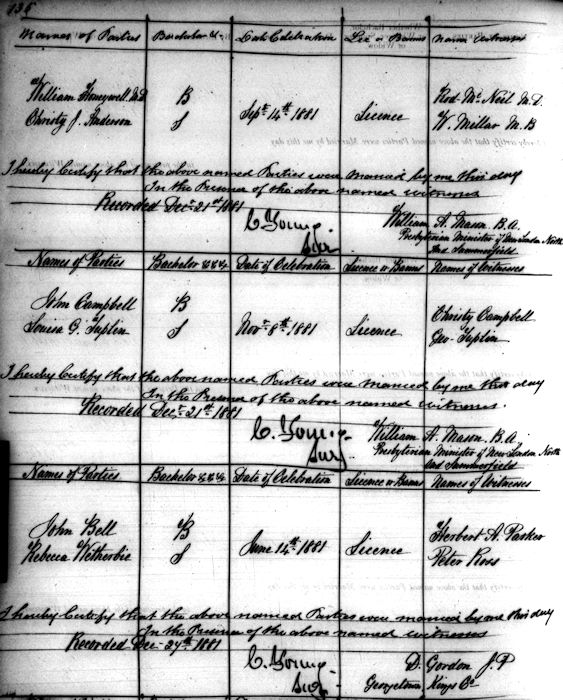 135
Names of Parties Bachelor &c. Date Celebration Lic or Banns Name Witnesses
William Honeywell M.D B Sept 14th 1881 Licence Rod. McNeil M.D.
Christy J. Anderson S W. Millar M.B
I hereby Certify that the above named Parties were married by me this day
In the Presence of the above named witnesses
Recorded Dec. 21st 1881
C. Young William A. Mason B.A.
Sur Presbyterian Minister of New London North
and Summerfield
Names of Parties Bachelor &c &c Date of Celebration Licence or Banns Names of Witnesses
John Campbell B Christy Campbell
Louisa G. Tuplin S Nov. 8th 1881 Licence Geo. Tuplin
I hereby Certify that the above named Parties were married by me this day
In the Presence of the above named witnesses.
Recorded Dec. 21st 1881
C. Young William A. Mason B.A.
Sur Presbyterian Minister of New London North
and Summerfield
Names of Parties Bachelor &c &c Date of Celebration Licence or Banns Names of Witnesses
John Bell B Herbert A. Parker
Rebecca Wetherbie S June 14th 1881 Licence Peter Ross
I hereby Certify that the above named Parties were married by me this day
In the Presence of the above named witnesses
Recorded Dec. 29th 1881
C. Young D. Gordon J.P
Sur Georgetown Kings Co